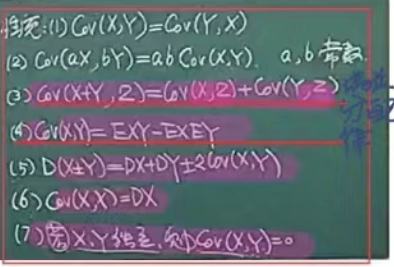 性质:(1) Cov(X,Y)=Cov(Y,X)
(2) Cov(aX,bY)=ab Cov(X,Y). a,b 常数.
(3) Cov(X+Y,Z)=Cov(X,Z)+Cov(Y,Z)
分配
作
(4) Cov(X,Y)=EXY-EXEY
(5) D(X±Y)=DX+DY±2Cov(X,Y)
(6) Cov(X,X)=DX
(7) 若X,Y独立,则Cov(X,Y)=0